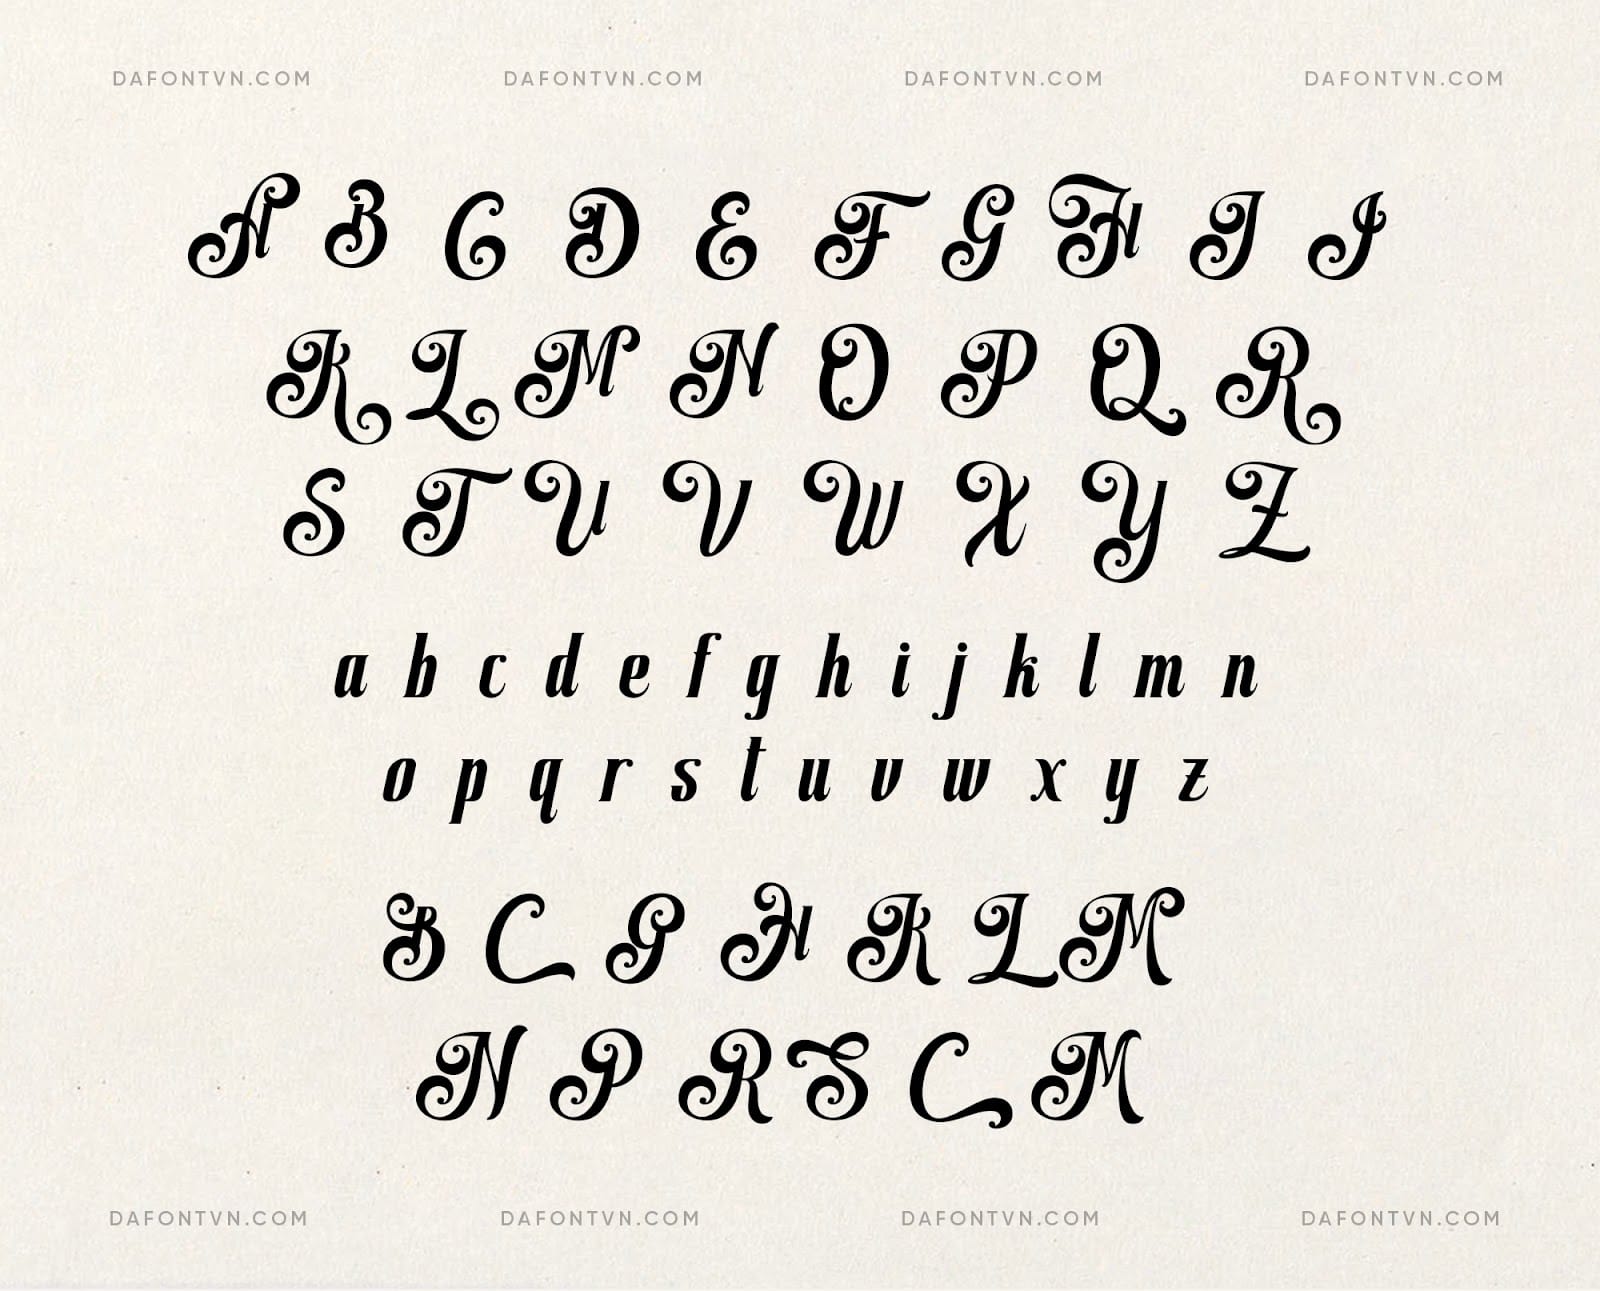 DAFONTVN.COM DAFONTVN.COM DAFONTVN.COM DAFONTVN.COM
A B C D E F G H I J
K L M N O P Q R
S T U V W X Y Z
a b c d e f g h i j k l m n
o p q r s t u v w x y z
B C G H K L M
N P R S C M
DAFONTVN.COM DAFONTVN.COM DAFONTVN.COM DAFONTVN.COM